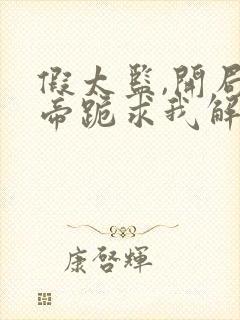 假太监,開局
帝跪求我解
康啓輝